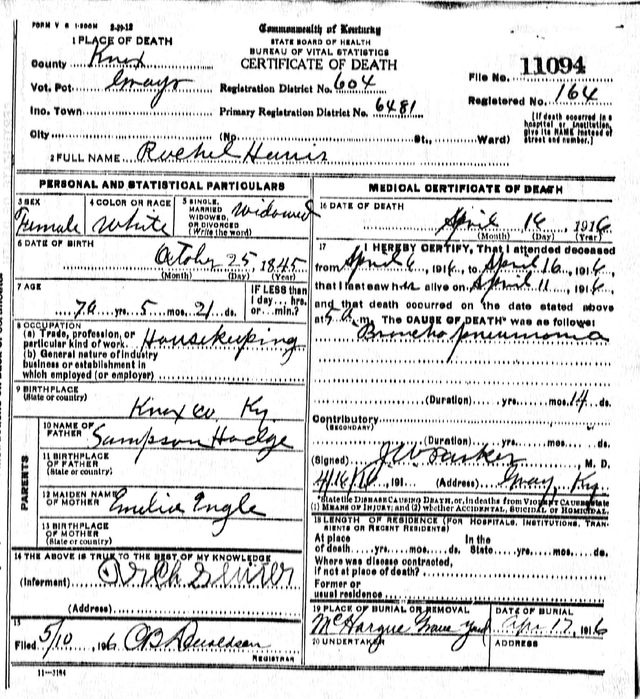 FORM V S 1-200M 2-29-12
Commonwealth of Kentucky
STATE BOARD OF HEALTH
BUREAU OF VITAL STATISTICS
CERTIFICATE OF DEATH
1 PLACE OF DEATH
County Knox
Vot. Pct. Grays
Registration District No. 604
File No. 11094
Inc. Town
Primary Registration District No. 6481
Registered No. 164
City (No. St., Ward)
[If death occurred in a hospital or institution, give its NAME instead of street and number.]
2 FULL NAME Rachel Harris
PERSONAL AND STATISTICAL PARTICULARS
3 SEX Female
4 COLOR OR RACE White
5 SINGLE, MARRIED, WIDOWED, OR DIVORCED (Write the word) Widowed
6 DATE OF BIRTH
October 25, 1845
(Month) (Day) (Year)
7 AGE
70 yrs. 5 mos. 21 ds.
IF LESS than 1 day... hrs. or... min.?
8 OCCUPATION
(a) Trade, profession, or particular kind of work. Housekeeping
(b) General nature of industry business or establishment in which employed (or employer)
9 BIRTHPLACE
(State or country)
Knox co Ky
PARENTS
10 NAME OF FATHER Sampson Hodge
11 BIRTHPLACE OF FATHER (State or country)
12 MAIDEN NAME OF MOTHER Emelia Engle
13 BIRTHPLACE OF MOTHER (State or country)
14 THE ABOVE IS TRUE TO THE BEST OF MY KNOWLEDGE
(Informant)
(Address)
15
Filed 5/10, 1916 Donaldson
REGISTRAR
11-3194
MEDICAL CERTIFICATE OF DEATH
16 DATE OF DEATH
April 16, 1916
(Month) (Day) (Year)
17 I HEREBY CERTIFY, That I attended deceased
from April 6, 1916, to April 16, 1916,
that I last saw her alive on April 11, 1916,
and that death occurred on the date stated above
at 5 a.m. The CAUSE OF DEATH* was as follows
Broncho pneumonia
(Duration) yrs. mos. 14 ds.
Contributory
(SECONDARY)
(Duration) yrs. mos. ds.
(Signed) Parker M. D.
4/16/16, 191 (Address) Gray, Ky
*State the DISEASE CAUSING DEATH, or, in deaths from VIOLENT CAUSES state
(1) MEANS OF INJURY; and (2) whether ACCIDENTAL, SUICIDAL or HOMICIDAL.
18 LENGTH OF RESIDENCE (FOR HOSPITALS, INSTITUTIONS, TRANSIENTS OR RECENT RESIDENTS)
At place of death yrs. mos. ds. In the State yrs. mos. ds.
Where was disease contracted, if not at place of death?
Former or usual residence
19 PLACE OF BURIAL OR REMOVAL
McHargue Grave Yard
DATE OF BURIAL
Apr 17, 1916
20 UNDERTAKER
ADDRESS